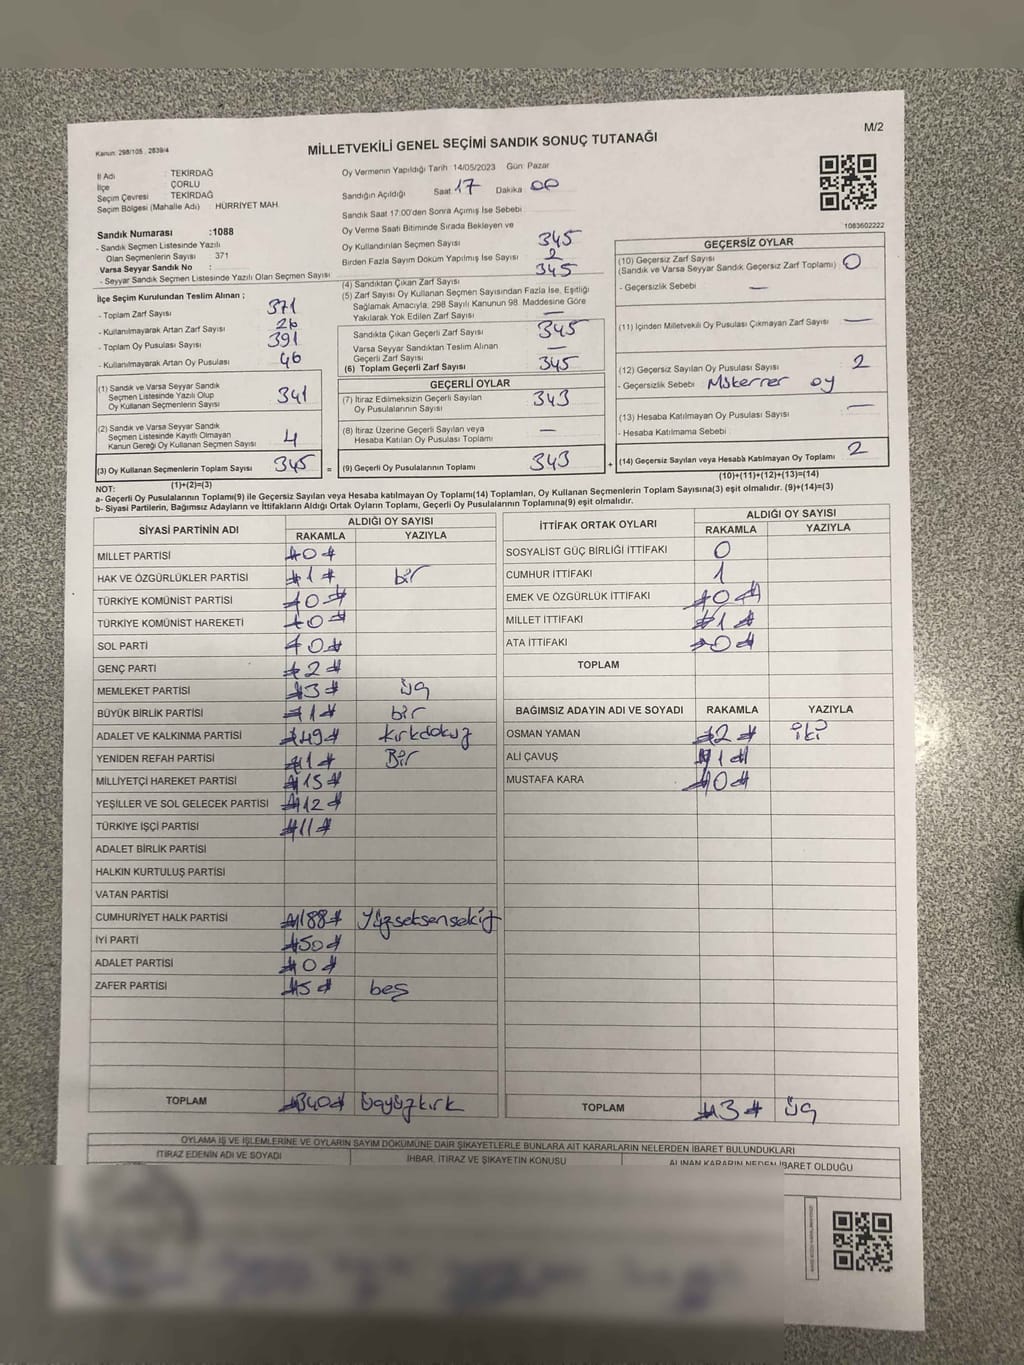 M/2
Kanun: 298/105 , 2839/4
MİLLETVEKİLİ GENEL SEÇİMİ SANDIK SONUÇ TUTANAĞI
İl Adı : TEKİRDAĞ
İlçe : ÇORLU
Seçim Çevresi : TEKİRDAĞ
Seçim Bölgesi (Mahalle Adı) : HÜRRİYET MAH.
Sandık Numarası :1088
- Sandık Seçmen Listesinde Yazılı
Olan Seçmenlerin Sayısı : 371
Varsa Seyyar Sandık No :
- Seyyar Sandık Seçmen Listesinde Yazılı Olan Seçmen Sayısı
İlçe Seçim Kurulundan Teslim Alınan ;
- Toplam Zarf Sayısı 371
- Kullanılmayarak Artan Zarf Sayısı 26
- Toplam Oy Pusulası Sayısı 391
- Kullanılmayarak Artan Oy Pusulası 46
(1) Sandık ve Varsa Seyyar Sandık
Seçmen Listesinde Yazılı Olup
Oy Kullanan Seçmenlerin Sayısı 341
(2) Sandık ve Varsa Seyyar Sandık
Seçmen Listesinde Kayıtlı Olmayan
Kanun Gereği Oy Kullanan Seçmen Sayısı 4
(3) Oy Kullanan Seçmenlerin Toplam Sayısı 345 =
(1)+(2)=(3)
Oy Vermenin Yapıldığı Tarih 14/05/2023 Gün: Pazar
Sandığın Açıldığı Saat 17 Dakika 00
Sandık Saat 17:00'den Sonra Açımış İse Sebebi
Oy Verme Saati Bitiminde Sırada Bekleyen ve
Oy Kullandırılan Seçmen Sayısı 345
Birden Fazla Sayım Döküm Yapılmış İse Sayısı 2
(4) Sandıktan Çıkan Zarf Sayısı 345
(5) Zarf Sayısı Oy Kullanan Seçmen Sayısından Fazla İse, Eşitliği
Sağlamak Amacıyla, 298 Sayılı Kanunun 98. Maddesine Göre
Yakılarak Yok Edilen Zarf Sayısı —
Sandıkta Çıkan Geçerli Zarf Sayısı 345
Varsa Seyyar Sandıktan Teslim Alınan
Geçerli Zarf Sayısı —
(6) Toplam Geçerli Zarf Sayısı 345
GEÇERLİ OYLAR
(7) İtiraz Edilmeksizin Geçerli Sayılan
Oy Pusulalarının Sayısı 343
(8) İtiraz Üzerine Geçerli Sayılan veya
Hesaba Katılan Oy Pusulası Toplamı —
(9) Geçerli Oy Pusulalarının Toplamı 343 +
1083602222
GEÇERSİZ OYLAR
(10) Geçersiz Zarf Sayısı
(Sandık ve Varsa Seyyar Sandık Geçersiz Zarf Toplamı) 0
- Geçersizlik Sebebi —
(11) İçinden Milletvekili Oy Pusulası Çıkmayan Zarf Sayısı —
(12) Geçersiz Sayılan Oy Pusulası Sayısı 2
- Geçersizlik Sebebi Mükerrer oy
(13) Hesaba Katılmayan Oy Pusulası Sayısı —
- Hesaba Katılmama Sebebi
(14) Geçersiz Sayılan veya Hesaba Katılmayan Oy Toplamı 2
(10)+(11)+(12)+(13)=(14)
NOT:
a- Geçerli Oy Pusulalarının Toplamı(9) ile Geçersiz Sayılan veya Hesaba katılmayan Oy Toplamı(14) Toplamları, Oy Kullanan Seçmenlerin Toplam Sayısına(3) eşit olmalıdır. (9)+(14)=(3)
b- Siyasi Partilerin, Bağımsız Adayların ve İttifakların Aldığı Ortak Oyların Toplamı, Geçerli Oy Pusulalarının Toplamına(9) eşit olmalıdır.
SİYASİ PARTİNİN ADI ALDIĞI OY SAYISI
RAKAMLA YAZIYLA
MİLLET PARTİSİ #0#
HAK VE ÖZGÜRLÜKLER PARTİSİ #1# bir
TÜRKİYE KOMÜNİST PARTİSİ #0#
TÜRKİYE KOMÜNİST HAREKETİ #0#
SOL PARTİ #0#
GENÇ PARTİ #2#
MEMLEKET PARTİSİ #3# üç
BÜYÜK BİRLİK PARTİSİ #1# bir
ADALET VE KALKINMA PARTİSİ #49# kırkdokuz
YENİDEN REFAH PARTİSİ #1# Bir
MİLLİYETÇİ HAREKET PARTİSİ #15#
YEŞİLLER VE SOL GELECEK PARTİSİ #12#
TÜRKİYE İŞÇİ PARTİSİ #11#
ADALET BİRLİK PARTİSİ
HALKIN KURTULUŞ PARTİSİ
VATAN PARTİSİ
CUMHURİYET HALK PARTİSİ #188# Yüzseksensekiz
İYİ PARTİ #50#
ADALET PARTİSİ #0#
ZAFER PARTİSİ #5# beş
TOPLAM #340# üçyüzkırk
İTTİFAK ORTAK OYLARI ALDIĞI OY SAYISI
RAKAMLA YAZIYLA
SOSYALİST GÜÇ BİRLİĞİ İTTİFAKI 0
CUMHUR İTTİFAKI 1
EMEK VE ÖZGÜRLÜK İTTİFAKI #0#
MİLLET İTTİFAKI #1#
ATA İTTİFAKI #0#
TOPLAM
BAĞIMSIZ ADAYIN ADI VE SOYADI RAKAMLA YAZIYLA
OSMAN YAMAN #2# iki
ALİ ÇAVUŞ #1#
MUSTAFA KARA #0#
TOPLAM #3# üç
OYLAMA İŞ VE İŞLEMLERİNE VE OYLARIN SAYIM DÖKÜMÜNE DAİR ŞİKAYETLERLE BUNLARA AİT KARARLARIN NELERDEN İBARET BULUNDUKLARI
İTİRAZ EDENİN ADI VE SOYADI İHBAR, İTİRAZ VE ŞİKAYETİN KONUSU ALINAN KARARIN NEDEN İBARET OLDUĞU